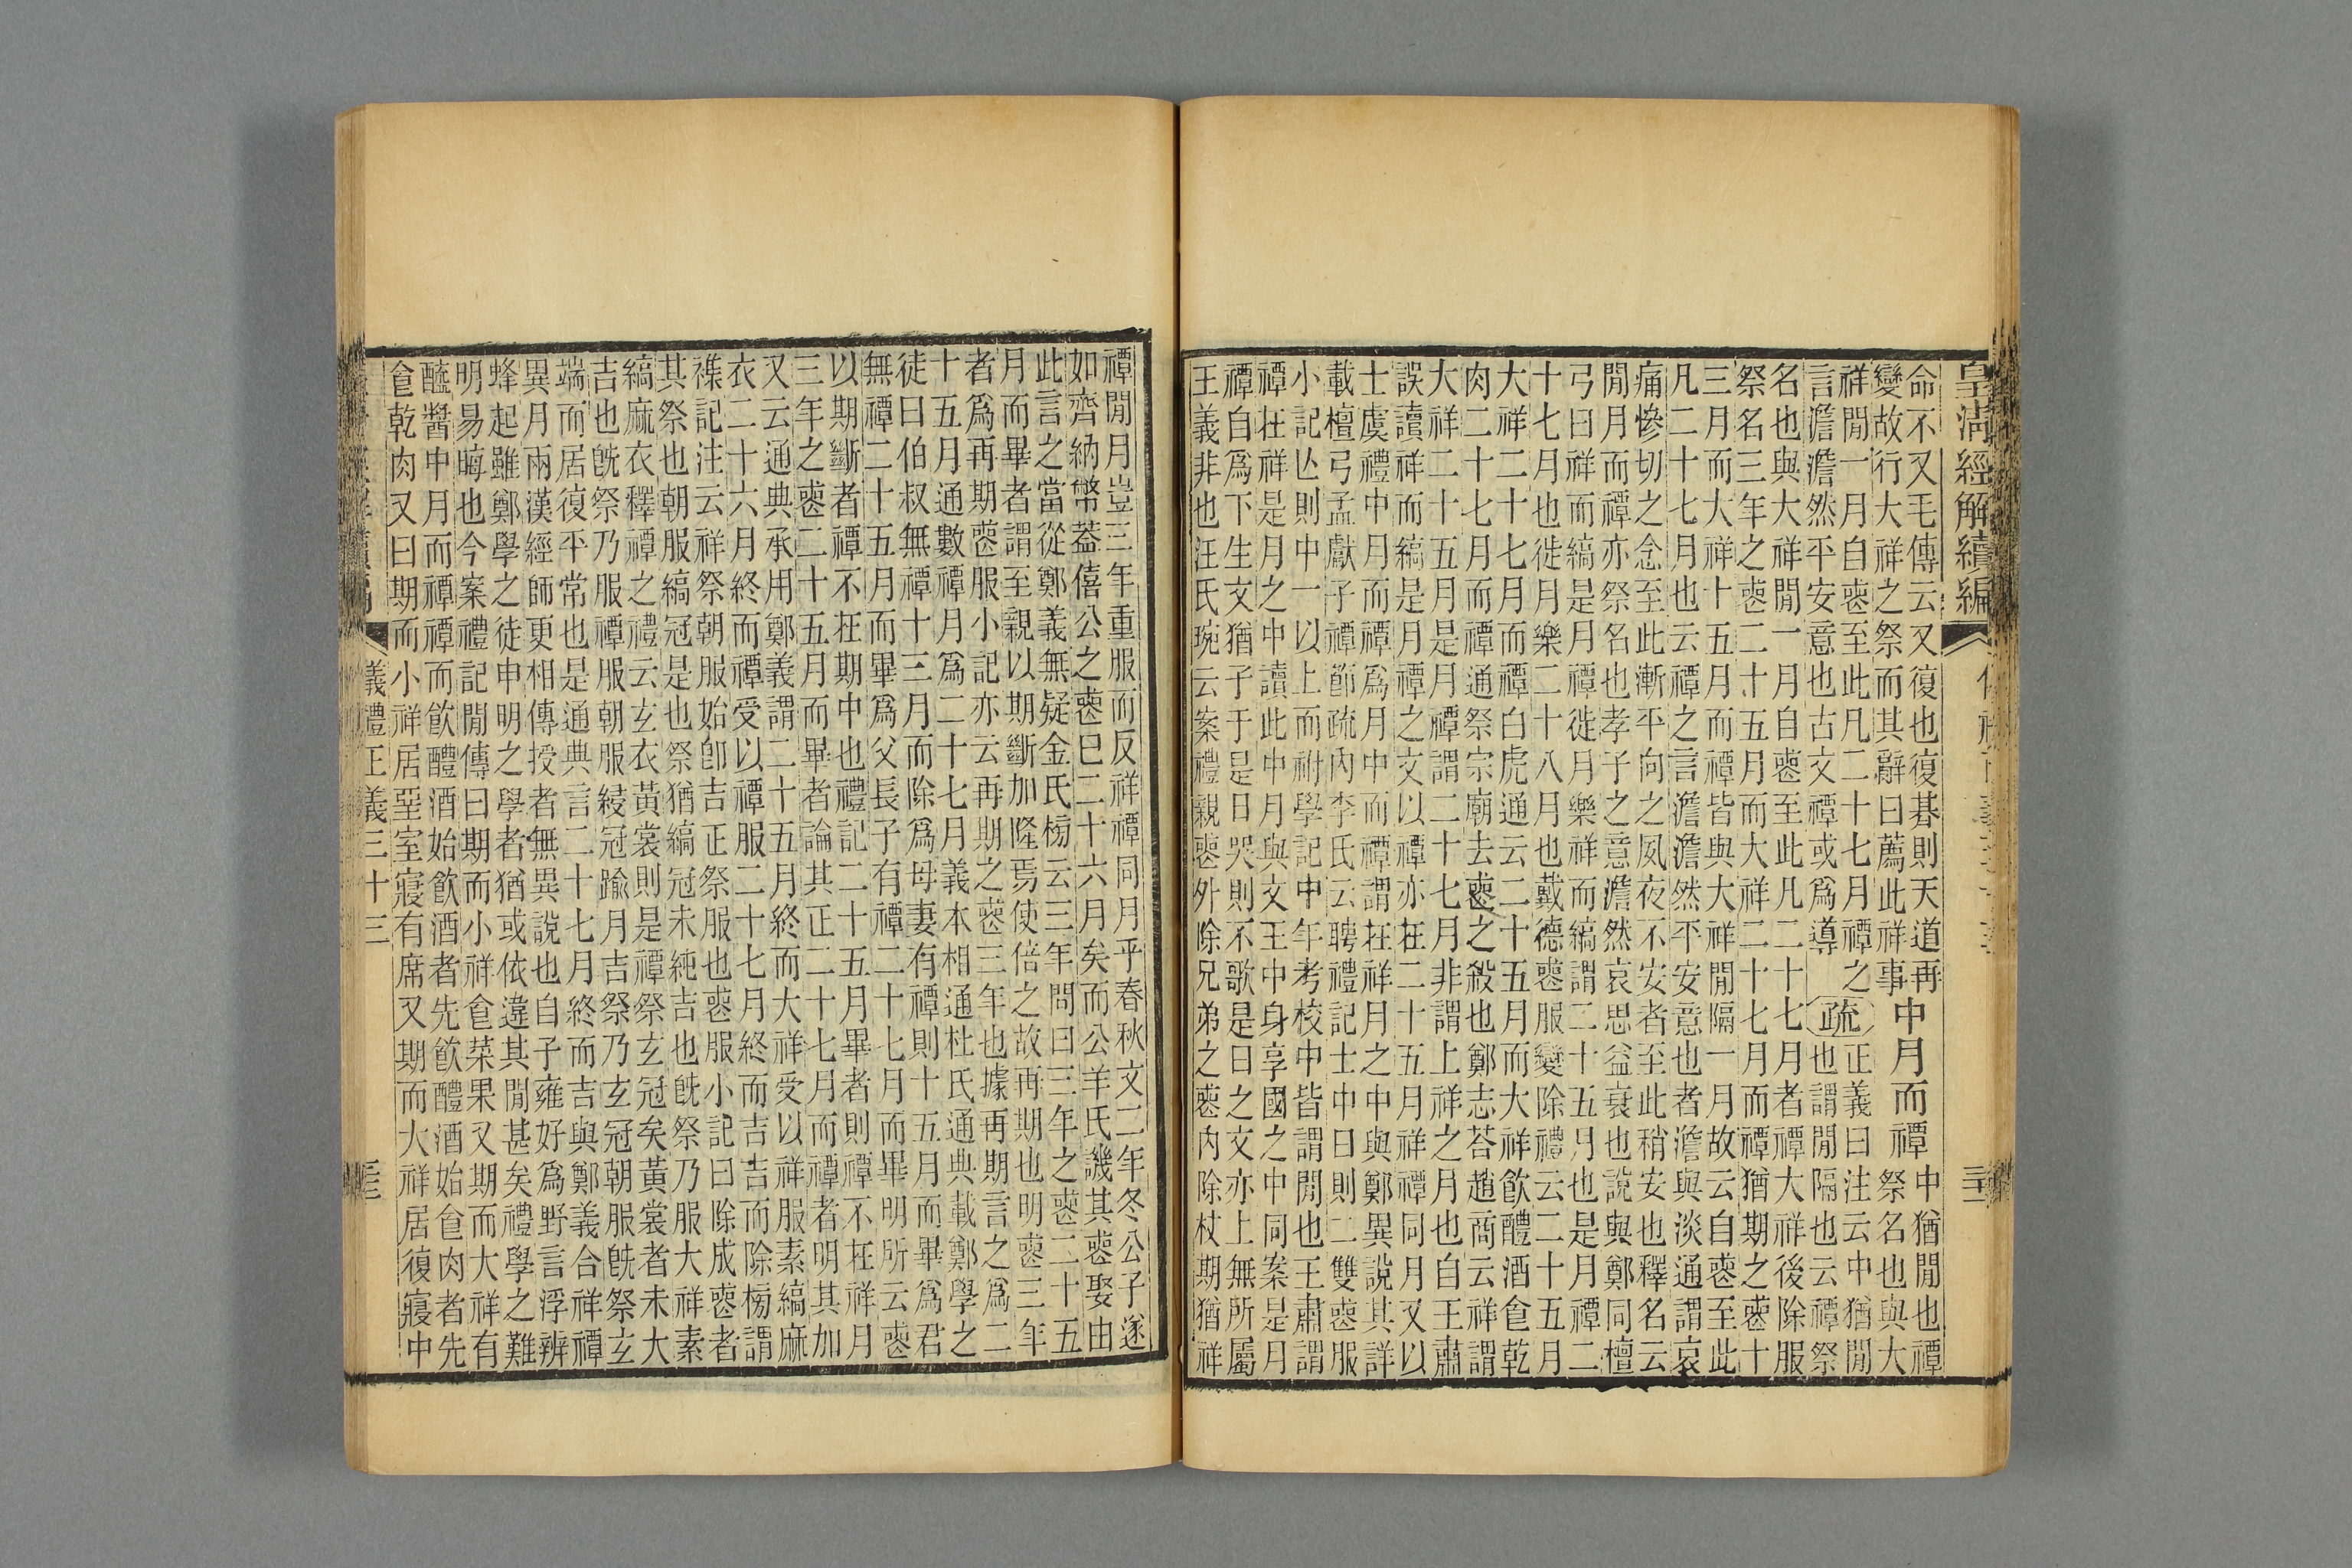 皇清經解續編
命不又毛傳云又復也復朞則天道再
變故行大祥之祭而其辭曰薦此祥事
中月而禫
中猶閒也禫
祭名也與大
祥閒一月自喪至此凡二十七月禫之
言澹澹然平安意也古文禫或爲導
疏
正義曰注云中猶閒
也謂閒隔也云禫祭
名也與大祥閒一月自喪至此凡二十七月者禫大祥後除服
祭名三年之喪二十五月而大祥二十七月而禫猶期之喪十
三月而大祥十五月而禫皆與大祥閒隔一月故云自喪至此
凡二十七月也云禫之言澹澹然平安意也者澹與淡通謂哀
痛慘切之念至此漸平向之夙夜不安者至此稍安也釋名云
閒月而禫亦祭名也孝子之意澹然哀思益衰也說與鄭同檀
弓曰祥而縞是月禫徙月樂祥而縞謂二十五月也是月禫二
十七月也徙月樂二十八月也戴德喪服變除禮云二十五月
大祥二十七月而禫白虎通云二十五月而大祥飮醴酒食乾
肉二十七月而禫通祭宗廟去喪之殺也鄭志荅趙商云祥謂
大祥二十五月是月禫謂二十七月非謂上祥之月也自王肅
誤讀祥而縞是月禫之文以禫亦在二十五月祥禫同月又以
士虞禮中月而禫爲月中而禫謂在祥月之中與鄭異說其詳
載檀弓孟獻子禫節疏內李氏云聘禮記士中日則二雙喪服
小記亾則中一以上而祔學記中年考校中皆謂閒也王肅謂
禫在祥是月之中讀此中月與文王中身享國之中同案是月
禫自爲下生文猶子于是日哭則不歌是日之文亦上無所屬
王義非也汪氏琬云案禮親喪外除兄弟之喪內除杖期猶祥
禫閒月豈三年重服而反祥禫同月乎春秋文二年冬公子遂
如齊納幣蓋僖公之喪已二十六月矣而公羊氏譏其喪娶由
此言之當從鄭義無疑金氏榜云三年問曰三年之喪二十五
月而畢者謂至親以期斷加隆焉使倍之故再期也明喪三年
者爲再期喪服小記亦云再期之喪三年也據再期言之爲二
十五月通數禫月爲二十七月義本相通杜氏通典載鄭學之
徒曰伯叔無禫十三月而除爲母妻有禫則十五月而畢爲君
無禫二十五月而畢爲父長子有禫二十七月而畢明所云喪
以期斷者禫不在期中也禮記二十五月畢者則禫不在祥月
三年之喪二十五月而畢者論其正二十七月而禫者明其加
又云通典承用鄭義謂二十五月終而大祥受以祥服素縞麻
衣二十六月終而禫受以禫服二十七月終而吉吉而除榜謂
襍記注云祥祭朝服始卽吉正祭服也喪服小記曰除成喪者
其祭也朝服縞冠是也祭猶縞冠未純吉也旣祭乃服大祥素
縞麻衣釋禫之禮云玄衣黃裳則是禫祭玄冠矣黃裳者未大
吉也旣祭乃服禫服朝服綅冠踰月吉祭乃玄冠朝服旣祭玄
端而居復平常也是通典言二十七月終而吉與鄭義合祥禫
異月兩漢經師更相傳授者無異說也自子雍好爲野言浮辨
蜂起雖鄭學之徒申明之學者猶或依違其閒甚矣禮學之難
明易晦也今案禮記閒傳曰期而小祥食菜果又期而大祥有
醯醬中月而禫禫而飮醴酒始飮酒者先飮醴酒始食肉者先
食乾肉又曰期而小祥居堊室寢有席又期而大祥居復寢中
儀禮正義三十三